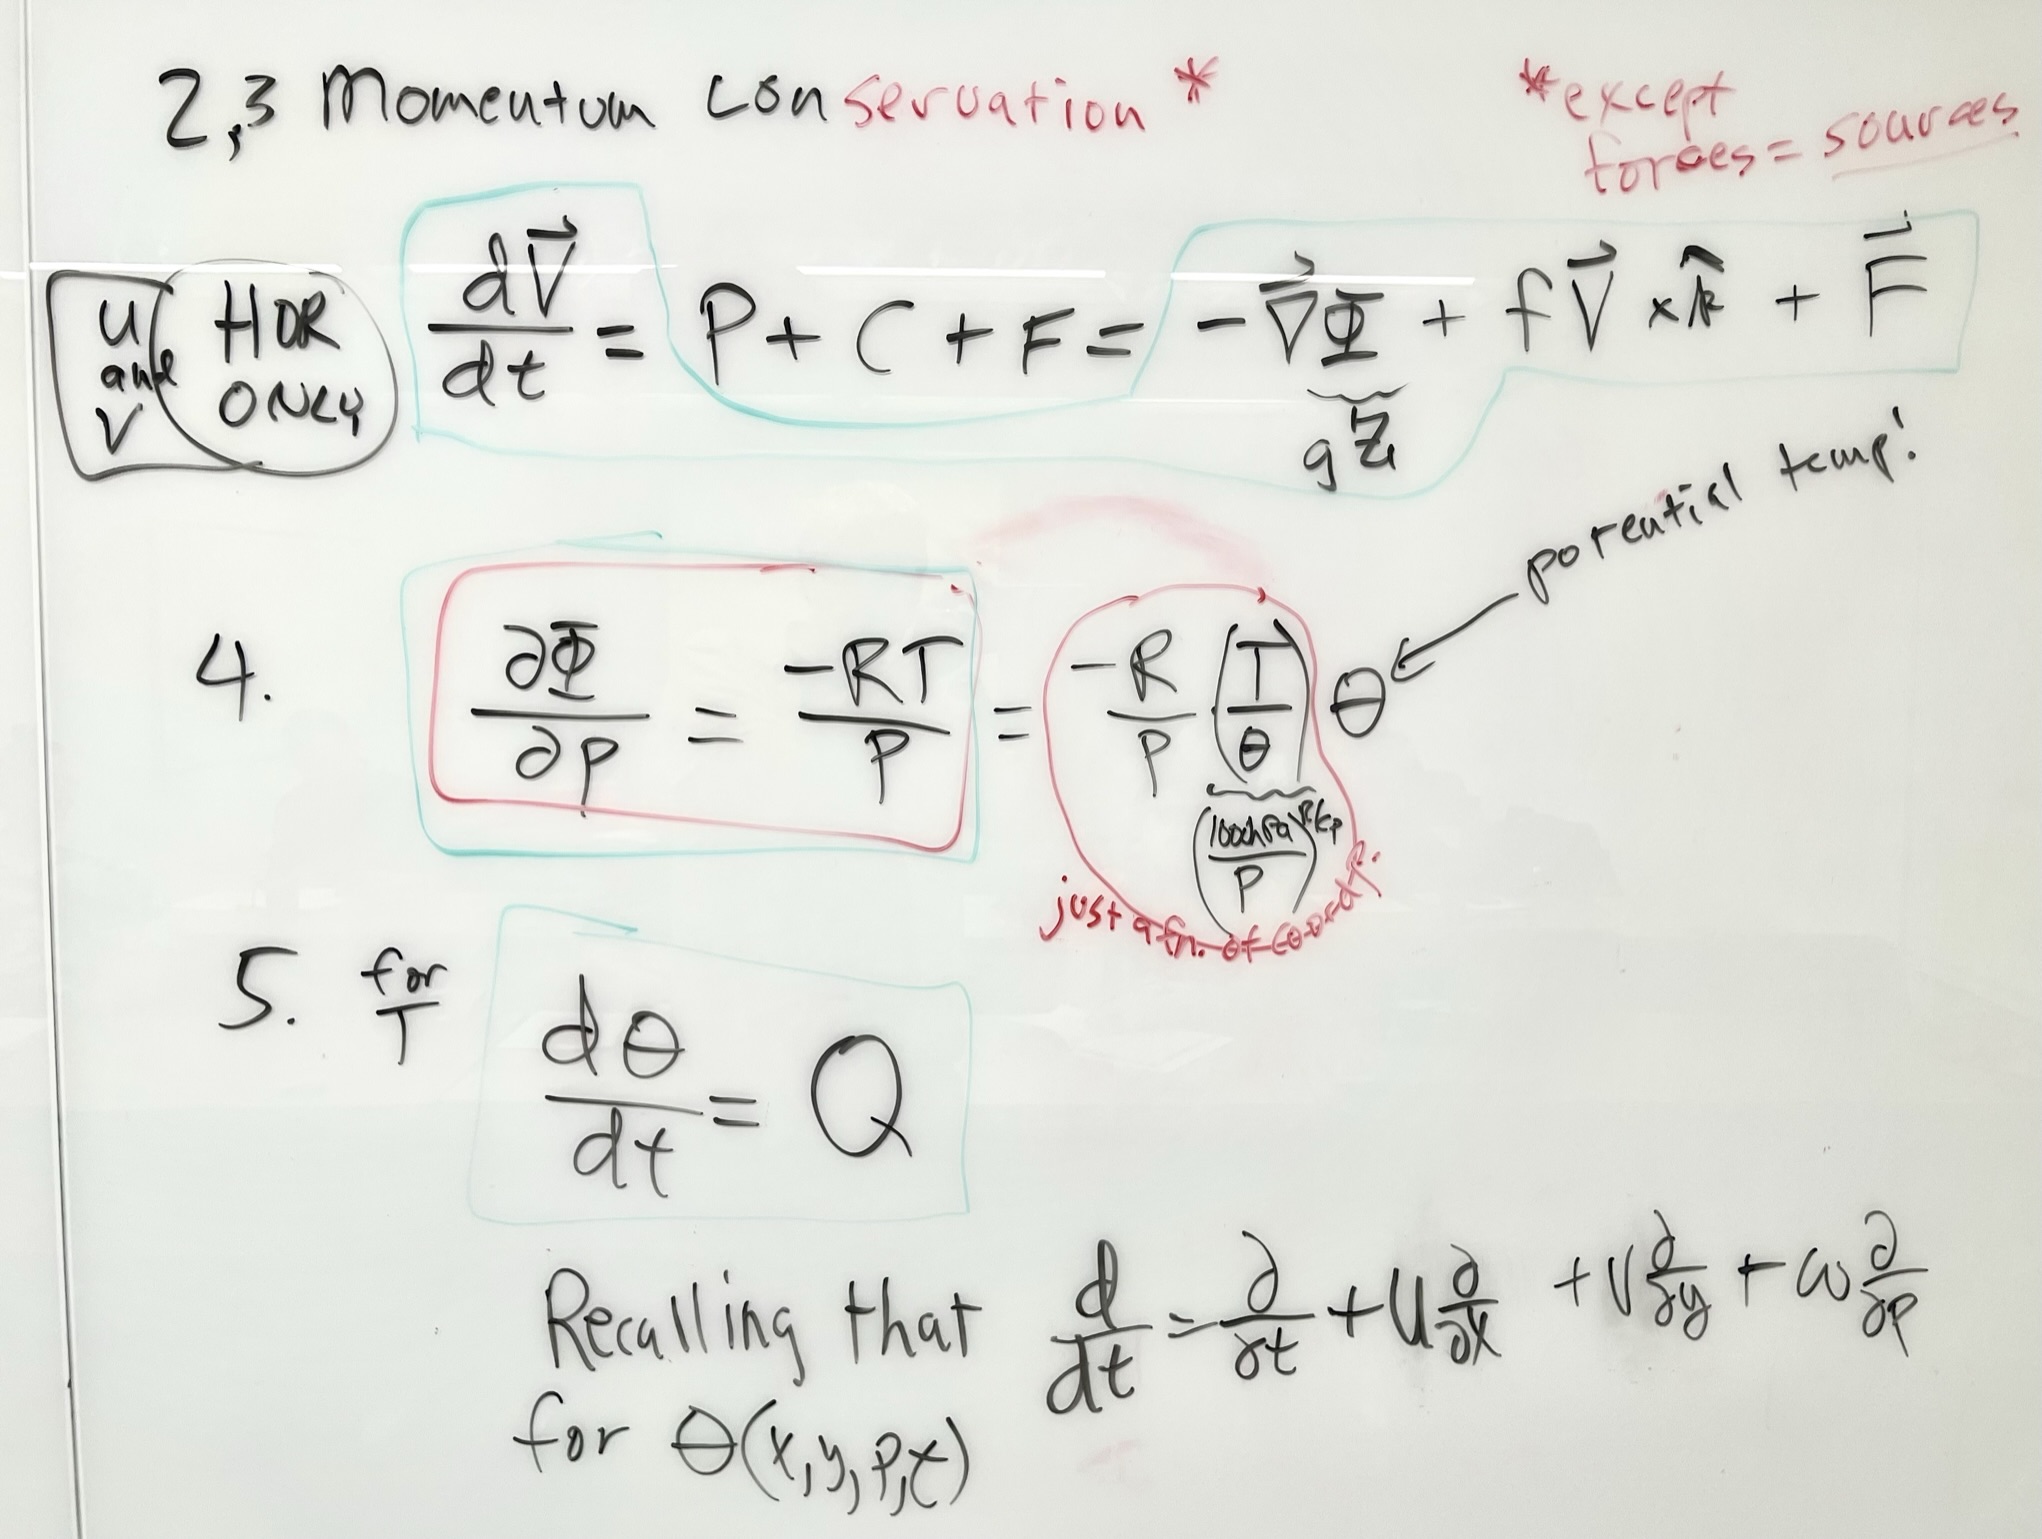 2,3 Momentum conservation *
*except
forces = sources
u and v
HOR ONLY
dV⃗/dt = P + C + F = -∇⃗Φ + fV⃗ × k̂ + F⃗
gZ
potential temp!
4. ∂Φ/∂p = -RT/P = -R/P (T/θ) θ
(1000hPa/P)^R/Cp
just a fn. of coord p.
5. for T dθ/dt = Q
Recalling that d/dt = ∂/∂t + u ∂/∂x + v ∂/∂y + ω ∂/∂p
for θ(x,y,p,t)